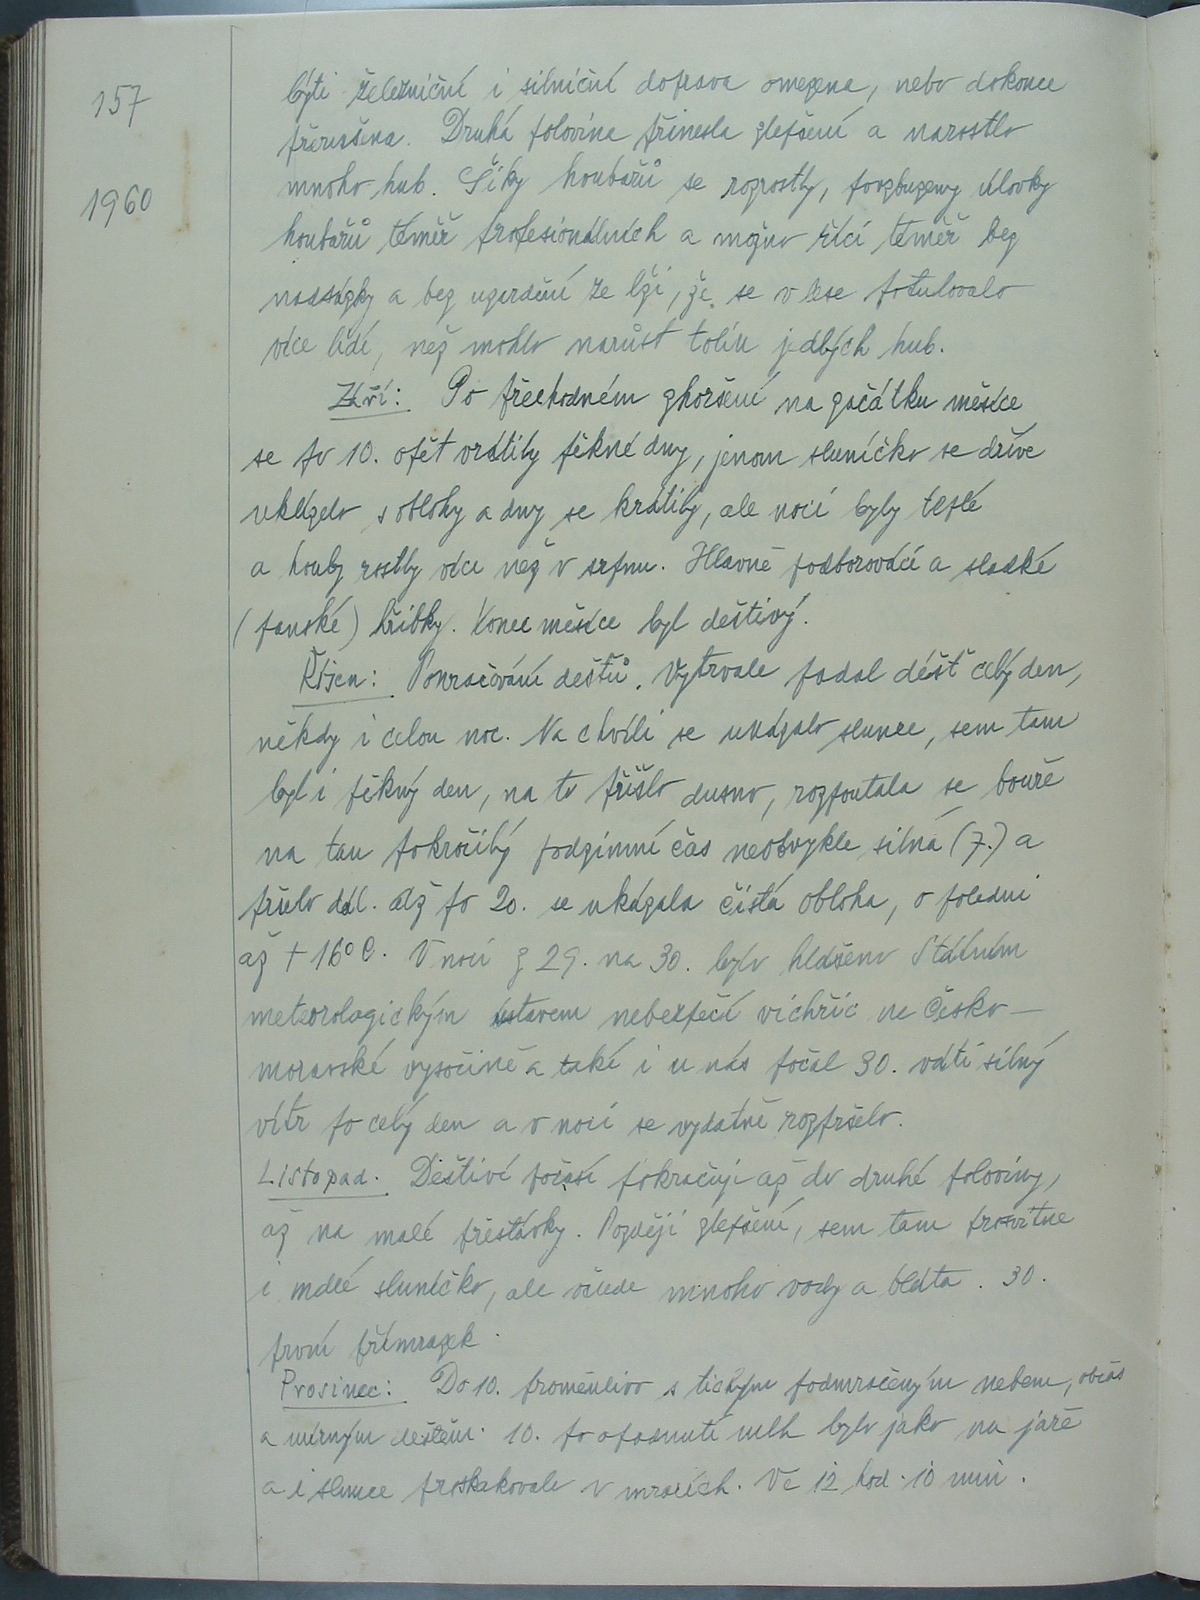 157
1960
býti železniční i silniční doprava omezena, nebo dokonce
přerušena. Druhá polovina přinesla zlepšení a narostlo
mnoho hub. Šiky houbařů se rozrostly, povzbuzeny úlovky
houbařů téměř profesionálních a možno říci téměř bez
nadsázky a bez uzardění ze lži, že se v lese potulovalo
více lidí, než mohlo narůst tolik jedlých hub.
Září: Po přechodném zhoršení na začátku měsíce
se po 10. opět vrátily pěkné dny, jenom sluníčko se dříve
ukázalo s oblohy a dny se krátily, ale noci byly teplé
a houby rostly více než v srpnu. Hlavně podborováci a sladké
(panské) hřibky. Konec měsíce byl deštivý.
Říjen: Pokračování dešťů. Vytrvale padal déšť celý den,
někdy i celou noc. Na chvíli se ukázalo slunce, sem tam
byl i pěkný den, na to přišlo dusno, rozpoutala se bouře
na tak pokročilý podzimní čas neobvykle silná (7.) a
pršelo dál. Až po 20. se ukázala čistá obloha, o poledni
až + 16° C. V noci z 29. na 30. bylo hlášeno Státním
meteorologickým ústavem nebezpečí vichřic na Česko-
moravské vysočině a také i u nás počal 30. váti silný
vítr po celý den a v noci se vydatně rozpršelo.
Listopad. Deštivé počasí pokračuje až do druhé poloviny,
až na malé přestávky. Později zlepšení, sem tam prosvitne
i mdlé sluníčko, ale všude mnoho vody a bláta. 30.
první přímrazek.
Prosinec: Do 10. proměnlivo s tichým podmračeným nebem, občas
a mírným deštěm. 10. po opadnutí mlh bylo jako na jaře
a i slunce proskakovalo v mracích. Ve 12 hod. 10 min.